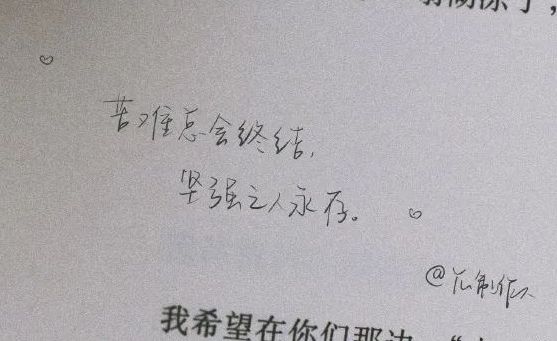 苦难总会终结,
坚强之人永存。
我希望在你们那边